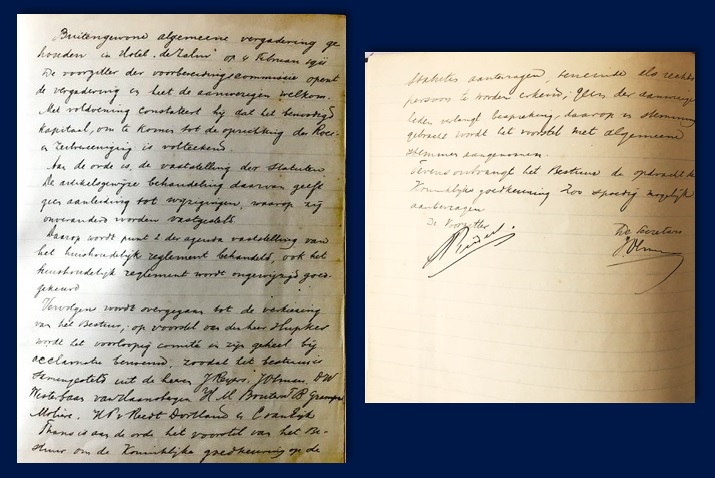 Buitengewone algemeene vergadering ge
houden in Hotel de Zalm op 4 Februari
De voorzitter der voorbereidingscommissie opent
de vergadering en heet de aanwezigen welkom.
Met voldoening constateert hij dat het benoodigd
kapitaal, om te komen tot de oprichting der Roei-
en Zeilvereeniging is voltekend.
Aan de orde is de vaststelling der statuten.
De artikelsgewijze behandeling daarvan geeft
geen aanleiding tot wijzigingen, waarop zij
onveranderd worden vastgesteld.
Daarop wordt punt 2 der agenda vaststelling van
het huishoudelijk reglement behandeld, ook het
huishoudelijk reglement wordt ongewijzigd goed-
gekeurd
Vervolgens wordt overgegaan tot de verkiezing
van het Bestuur; op voorstel van den heer
wordt het voorloopig comité en zijn geheel bij
acclamatie benoemd, zoodat het bestuur is
samengesteld uit de heeren
H. M. Bouten
Molière. Dortland en
Thans is aan de orde het voorstel van het Be-
stuur om de Koninklijke goedkeuring op de
statuten aantevragen, teneinde als rechts-
persoon te worden erkend; geen der aanwezige
leden verlangt bespreking, daarop in stemming
gebracht wordt het voorstel met algemeene
stemmen aangenomen.
Tevens ontvangt het Bestuur de opdracht de
Koninklijke goedkeuring zoo spoedig mogelijk
aantevragen
De Voorzitter
De Secretaris